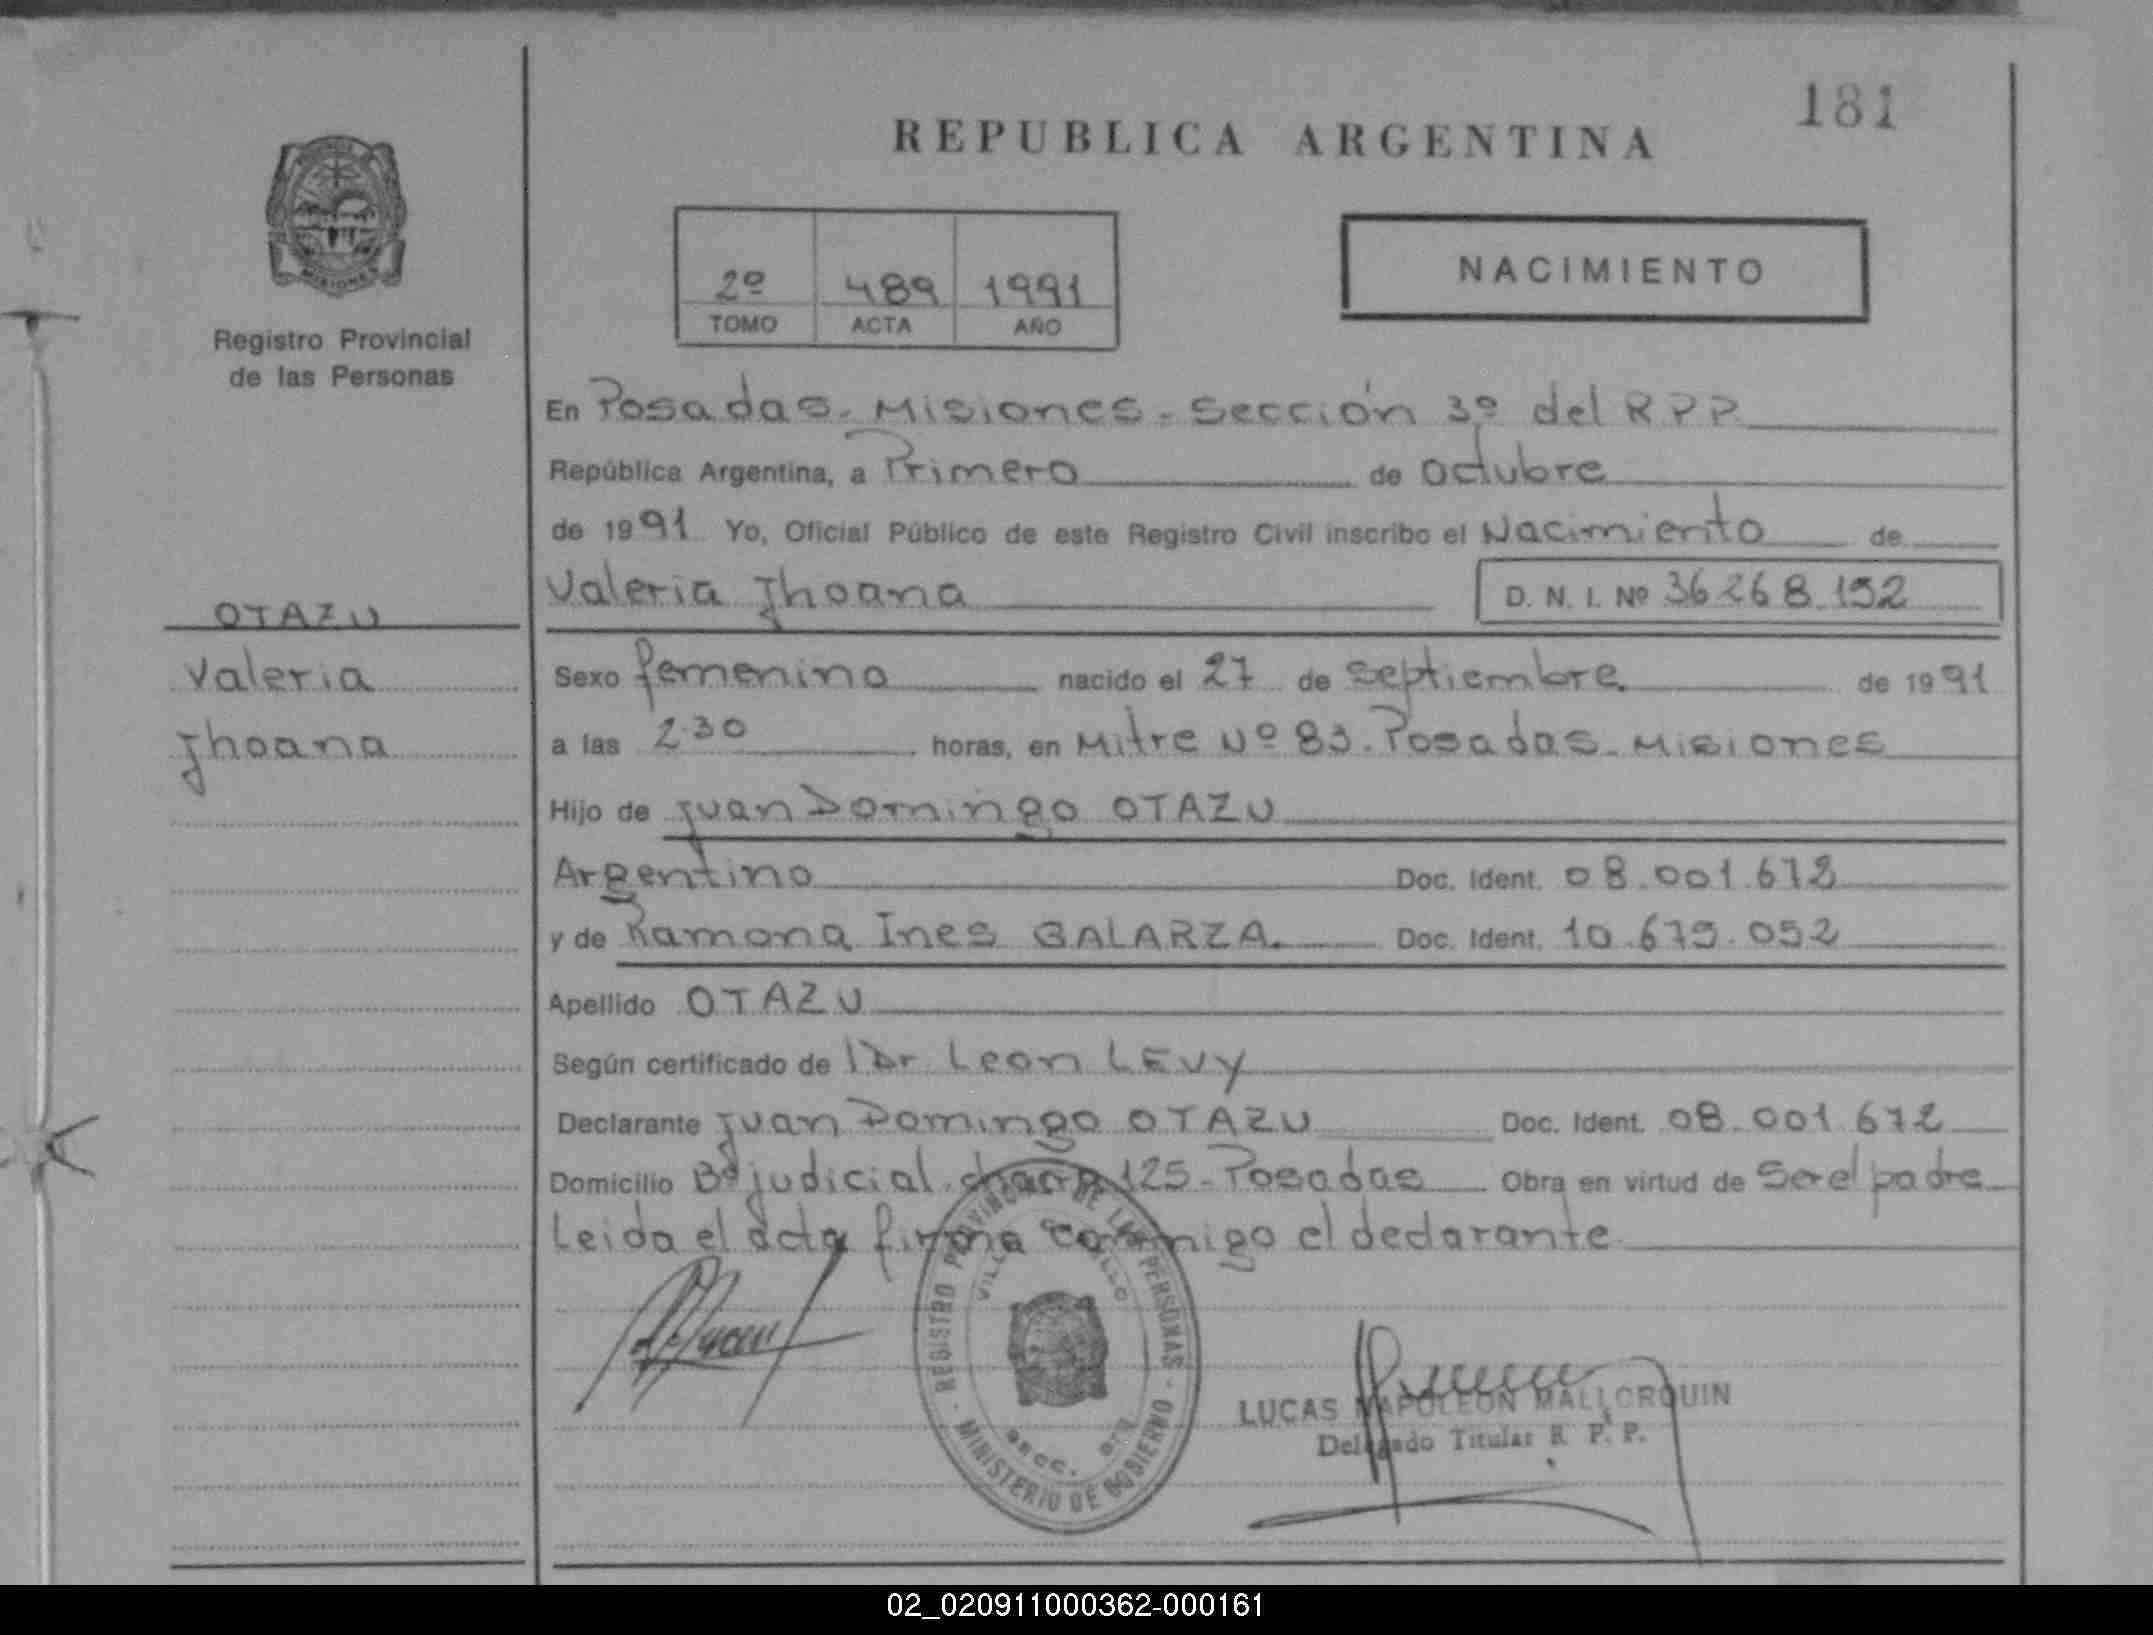 181
REPUBLICA ARGENTINA
MISIONES
Registro Provincial
de las Personas
2º 489 1991
TOMO ACTA AÑO
NACIMIENTO
En Posadas - Misiones - Sección 3º del R P P
República Argentina, a Primero de octubre
de 1991 Yo, Oficial Público de este Registro Civil inscribo el Nacimiento de
Valeria Jhoana D. N. I. Nº 36 268.152
OTAZU
Valeria
Jhoana
Sexo femenino nacido el 27 de septiembre. de 1991
a las 2.30 horas, en Mitre Nº 83. Posadas - Misiones
Hijo de Juan Domingo OTAZU
Argentino Doc. Ident. 08.001.672
y de Ramona Ines GALARZA. Doc. Ident. 10.675.052
Apellido OTAZU
Según certificado de Dr. Leon LEVY
Declarante Juan Domingo OTAZU Doc. Ident. 08.001.672
Domicilio Bº judicial chacra 125 - Posadas Obra en virtud de Ser el padre
Leida el acta firma conmigo el declarante
REGISTRO PROVINCIAL DE LAS PERSONAS
MINISTERIO DE GOBIERNO
LUCAS NAPOLEON MALLORQUIN
Delegado Titular R. P. P.
02_020911000362-000161